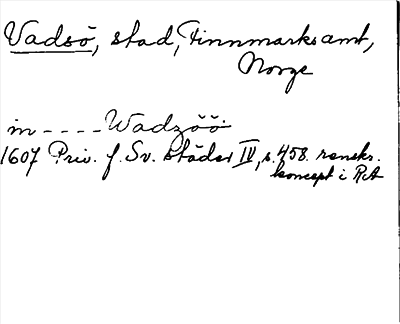 Vadsö, stad, Finnmarksamt,
Norge
in - - - - Wadzöö
1607 Priv. f. Sv. städer IV, s. 458. renskr.
koncept i RA